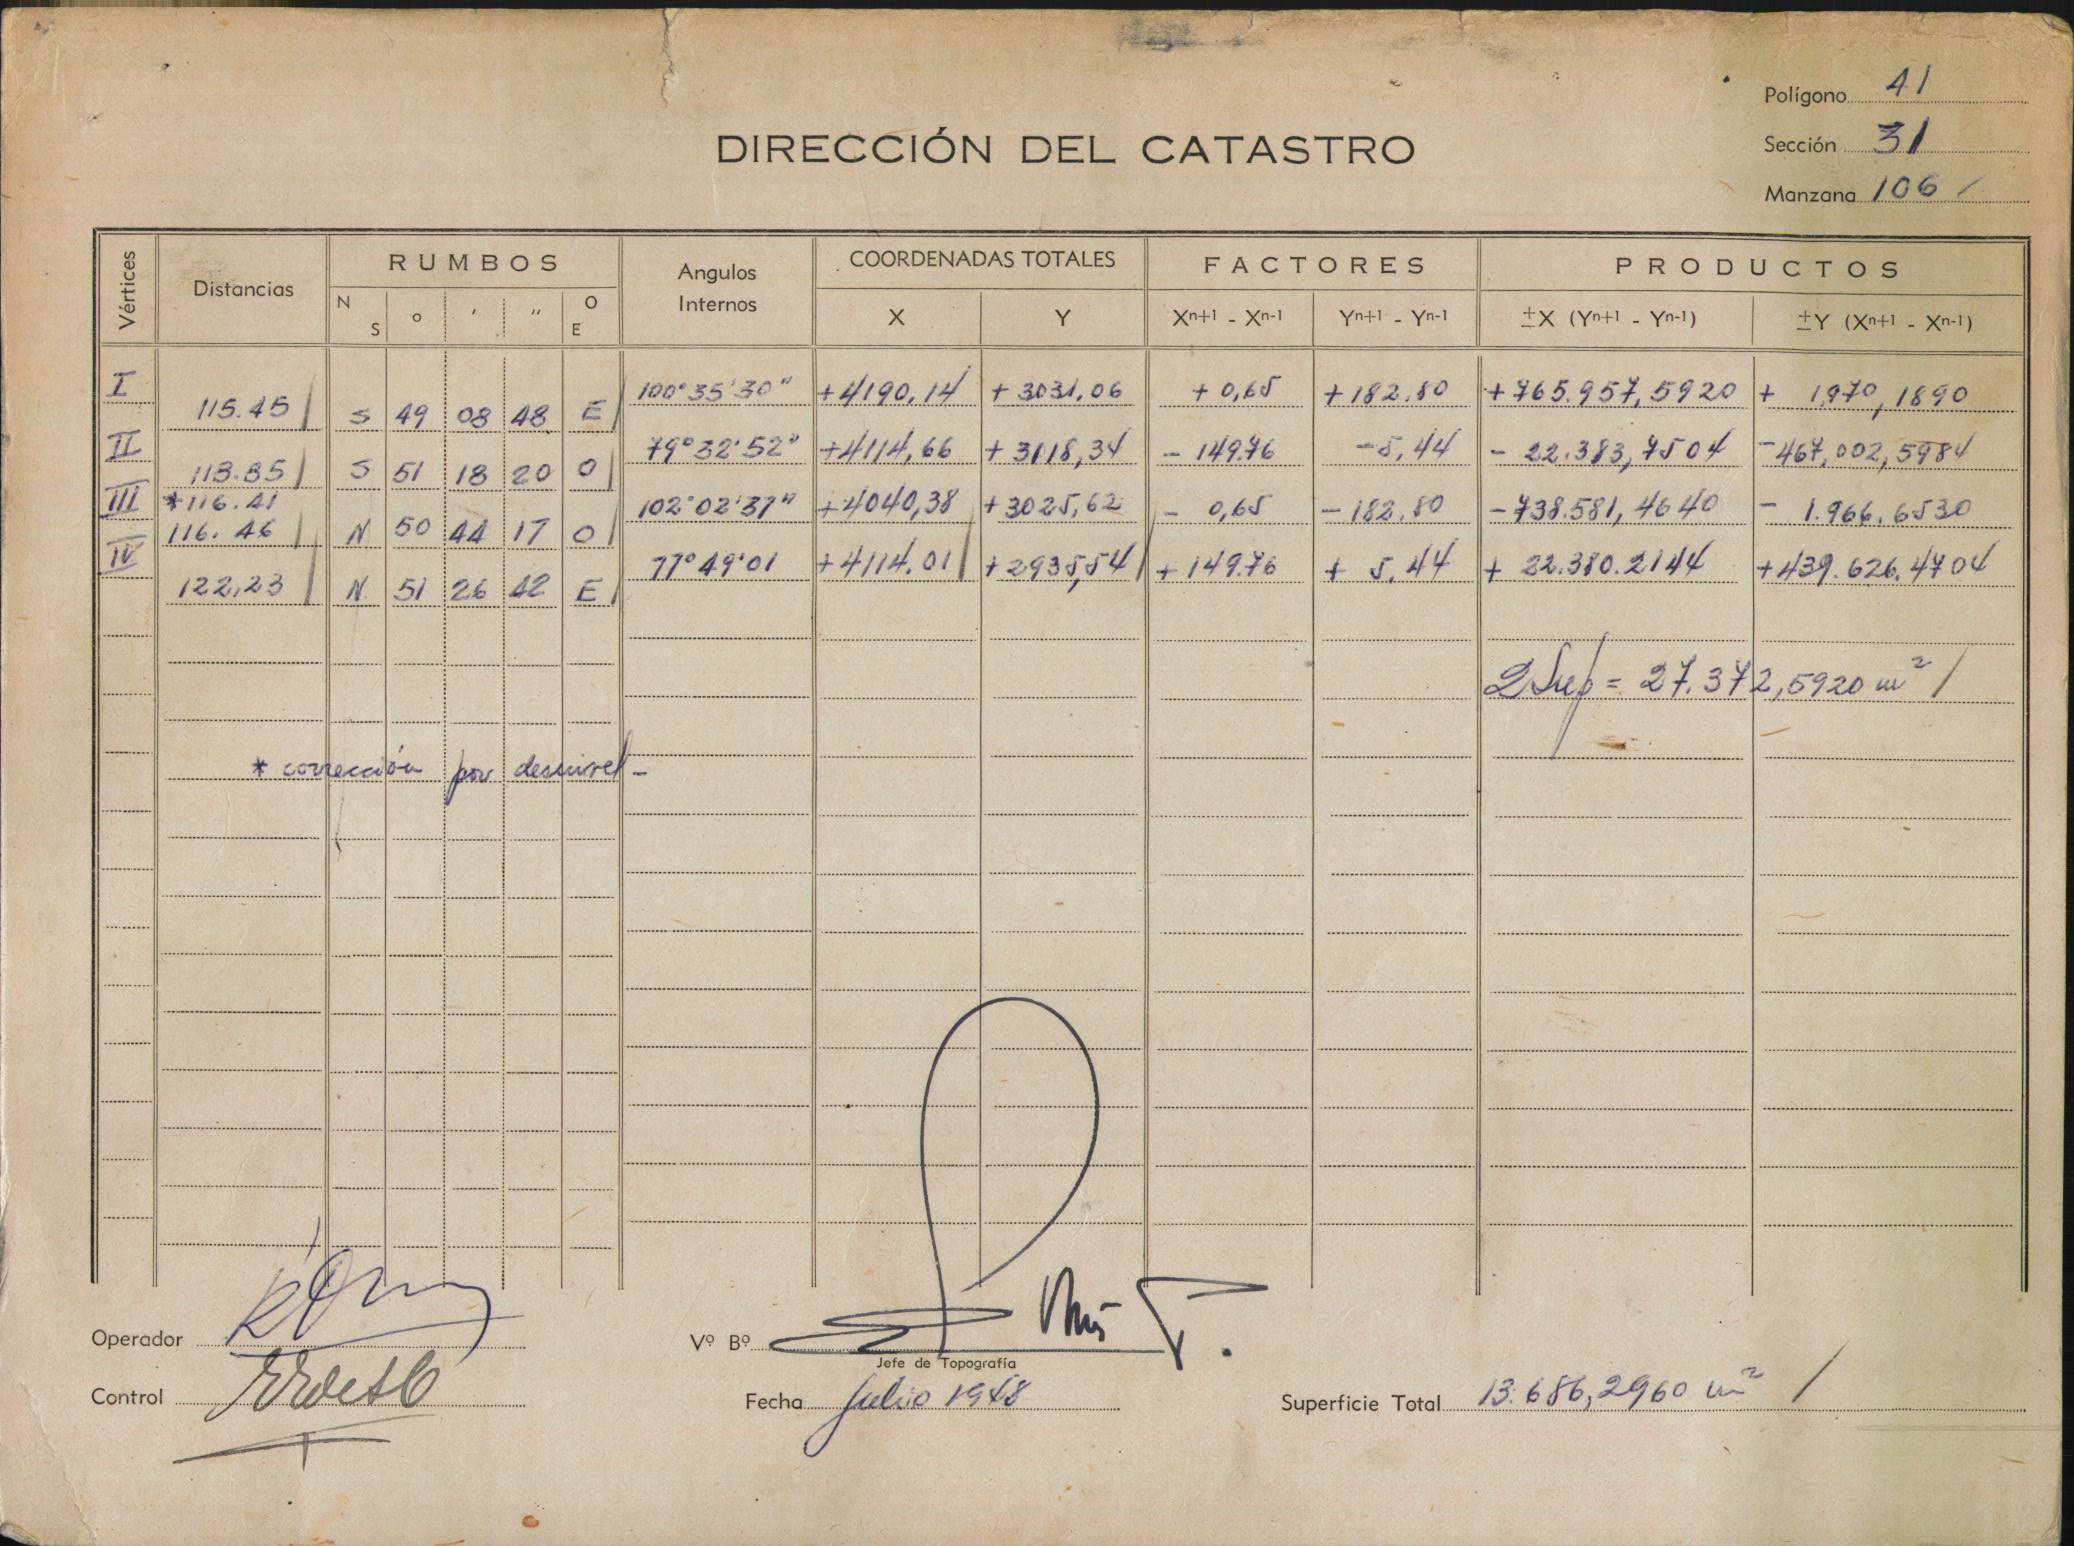 Polígono 41
DIRECCIÓN DEL CATASTRO
Sección 31
Manzana 106 /
Vértices Distancias RUMBOS Angulos Internos COORDENADAS TOTALES FACTORES PRODUCTOS
N S ° ' " O E X Y Xn+1 - Xn-1 Yn+1 - Yn-1 ±X (Yn+1 - Yn-1) ±Y (Xn+1 - Xn-1)
I 100°35'30" +4190,14 +3031,06 +0,65 +182.80 +765.957,5920 + 1,970,1890
115.45 S 49 08 48 E
II 79°32'52" +4114,66 +3118,34 - 149.76 -5,44 - 22.383,7504 -467,002,5984
118.85 S 51 18 20 O
III *116.41 102°02'37" +4040,38 +3025,62 - 0,65 -182,80 -738.581,4640 - 1.966.6530
116.46 N 50 44 17 O
IV 77°49'01 +4114.01 +2935,54 +149.76 + 5,44 + 22.380.2144 +439.626.4704
122,23 N 51 26 42 E
2 Sup = 27.372,5920 m²
* corrección por desnivel -
Operador
Vº Bº
Jefe de Topografía
Control
Fecha Julio 1948
Superficie Total 13.686,2960 m²